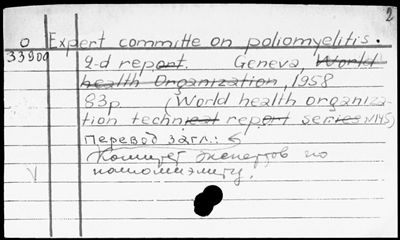 2
o Expert committe on poliomyelitis.
33900 2-d report. Geneva, World
health Organization, 1958
83p (World health organiza-
tion technical report series №145)
перевод загл.:
Комитет экспертов по
полиомиэлиту.
V